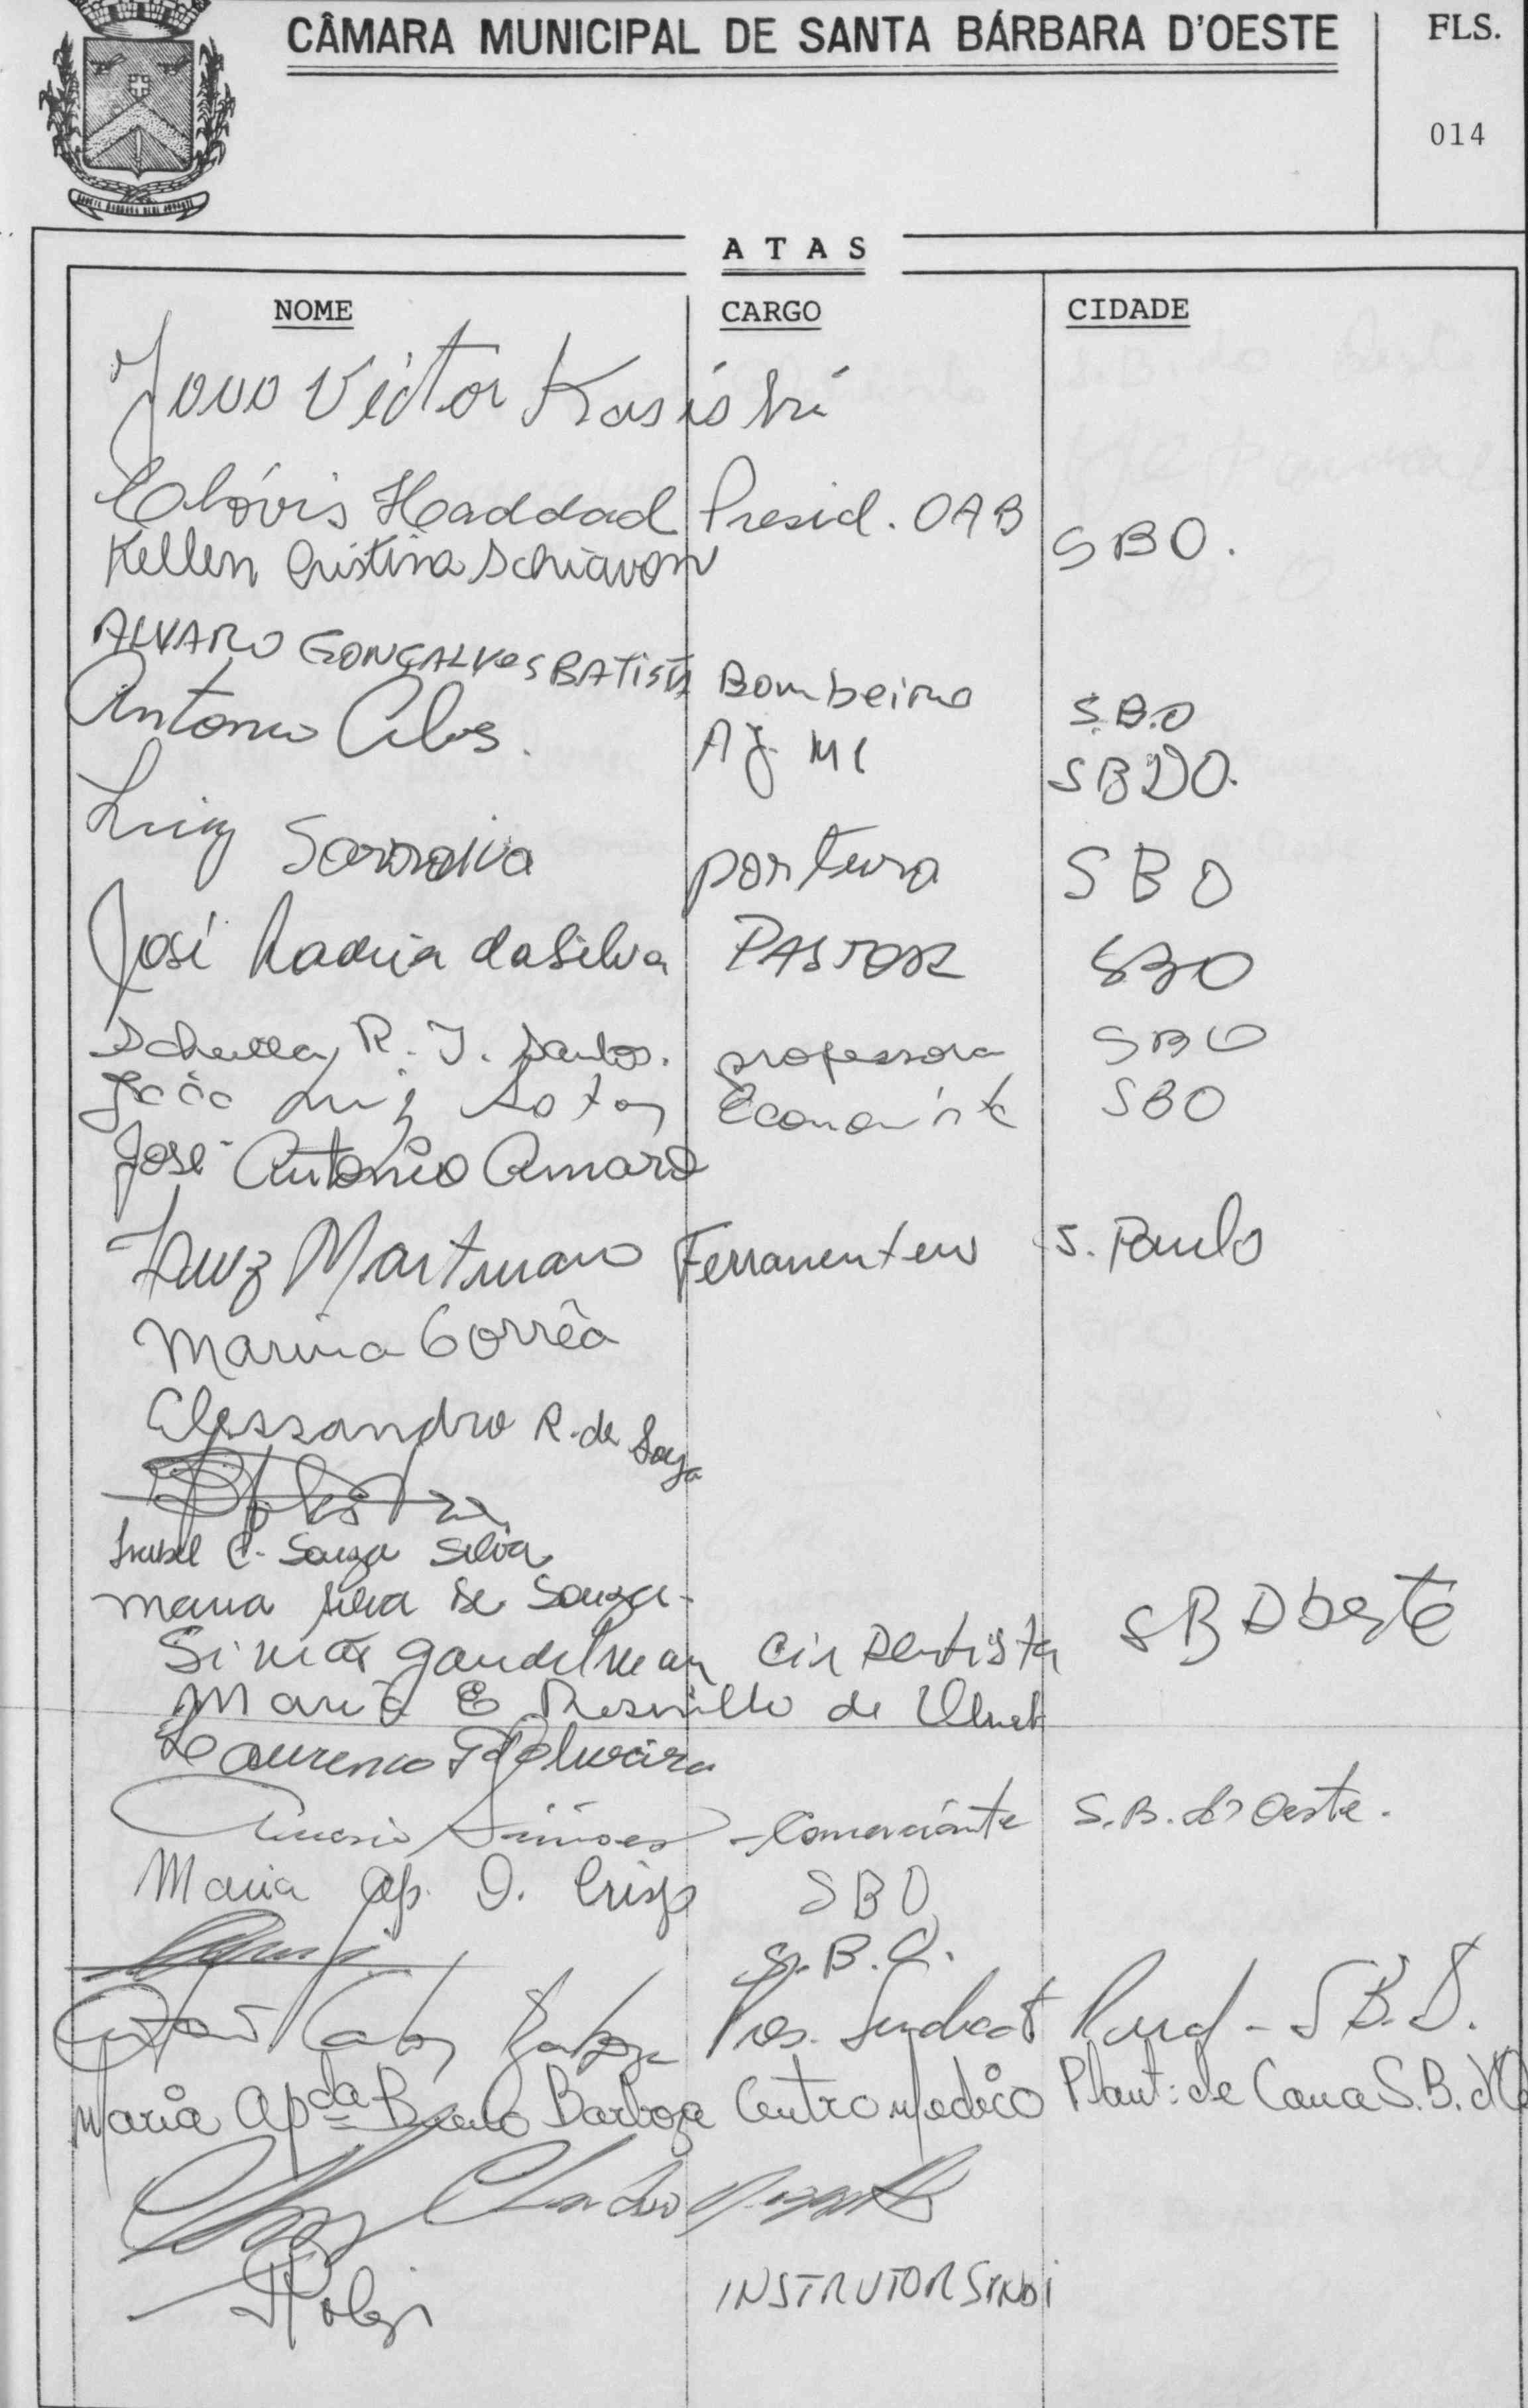 CÂMARA MUNICIPAL DE SANTA BÁRBARA D'OESTE
FLS.
014
ATAS
NOME CARGO CIDADE
Victor
Clóvis Haddad Presid. OAB SBO.
Kellen Cristina Schiavon
ALVARO GONÇALVES BATISTA Bombeiro S.B.O
Antonio SBDO.
Luiz Sarraiva porteiro SBO
José Maria da Silva PASTOR SBO
R. J. Santos. professora SBO
João Luiz Economista SBO
José Antonio Amaro
Luiz Martiniano Ferramenteiro S. Paulo
Marina Corrêa
Alessandro R. de Souza
Isabel C. Souza Silva
Maria Silva de Souza
Simão Gandelman Cir Dentista SBDoeste
Maria E de
Lourenço Oliveira
Simões - Comerciante S.B. d'Oeste.
Maria Ap. D. Crisp SBO
S.B.O.
Antonio Carlos Pres. Sindicat Rural - S.B.O.
Maria Apda Bueno Barboza Centro Medico Plant: de Cana S.B. d'O
Claudio
INSTRUTOR SINDI